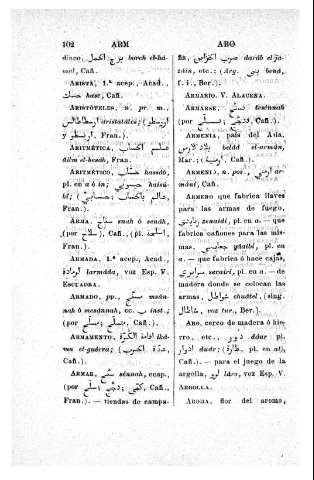 102 ARM ARO
disco, برج الحمل borch el-ha-
mel, Cañ.
ARISTA, 1.ª acep., Acad.,
حسك hasc, Cañ.
ARISTÓTELES, n. pr. m.,
ارسطاطاليس aristatáles; (ارسطو
y ارسطو, Fran.).
ARITMÉTICA, علم الحساب
âilm el-hesâb, Fran.
ARITMÉTICO, حساب hassâb,
pl. en a ó in; حسوبي hasú-
bi; (عالم بالحساب,
Fran.).
ARMA, سلاح snah ó senâh,
(por سلاح), Cañ., (pl. اسلحة,
Fran.).
ARMADA, 1.ª acep., Acad.,
ارمادة larmáda, voz Esp. V.
ESCUADRA.
ARMADO, pp., مسنح
nah ó mosannah, cc. ب inst.;
(por مسلح; متسلح, Fran.).
ARMAMENTO, اقامة الكورة ikâ-
ma el-gudrra; (عدة الحروب,
Cañ.).
ARMAR, سنح sénnah, csap.,
(por سلح), Cañ.; (دجج,
Fran.). — tiendas de campa-
ña, ضرب الخزاين daráb el-já-
záin, etc.: (Arg. بنى bená,
f. i., Ber.).
ARMARIO. V. ALACENA.
ARMARSE, تسنح tesénnah
(por تسلح), Cañ.
ARMENIA, país del Asia,
بلاد الارمن belád el-armán,
Mar.: (ارمينية, Cañ.).
ARMENIO, n. pos., ارمني ar-
máni, Cañ.
ARMERO que fabrica llaves
para las armas de fuego,
زنايدي zenaidi, pl. en a. — que
fabrica cañones para las mis-
mas, جعايبي pl. en
a. — que fabrica ó hace cajas,
سرايري serairi, pl. en a. — de
madera donde se colocan las
armas, شواطل chuátel. (sing.
شاطال, voz tur., Ber.).
ARO, cerco de madera ó hie-
rro, etc., دور ddar pl.
ادوار duár; (طارة, pl. en at),
Cañ.). — para el juego de la
argolla, لرو láro, voz Esp. V.
ARGOLLA.
AROMA, flor del aromo,